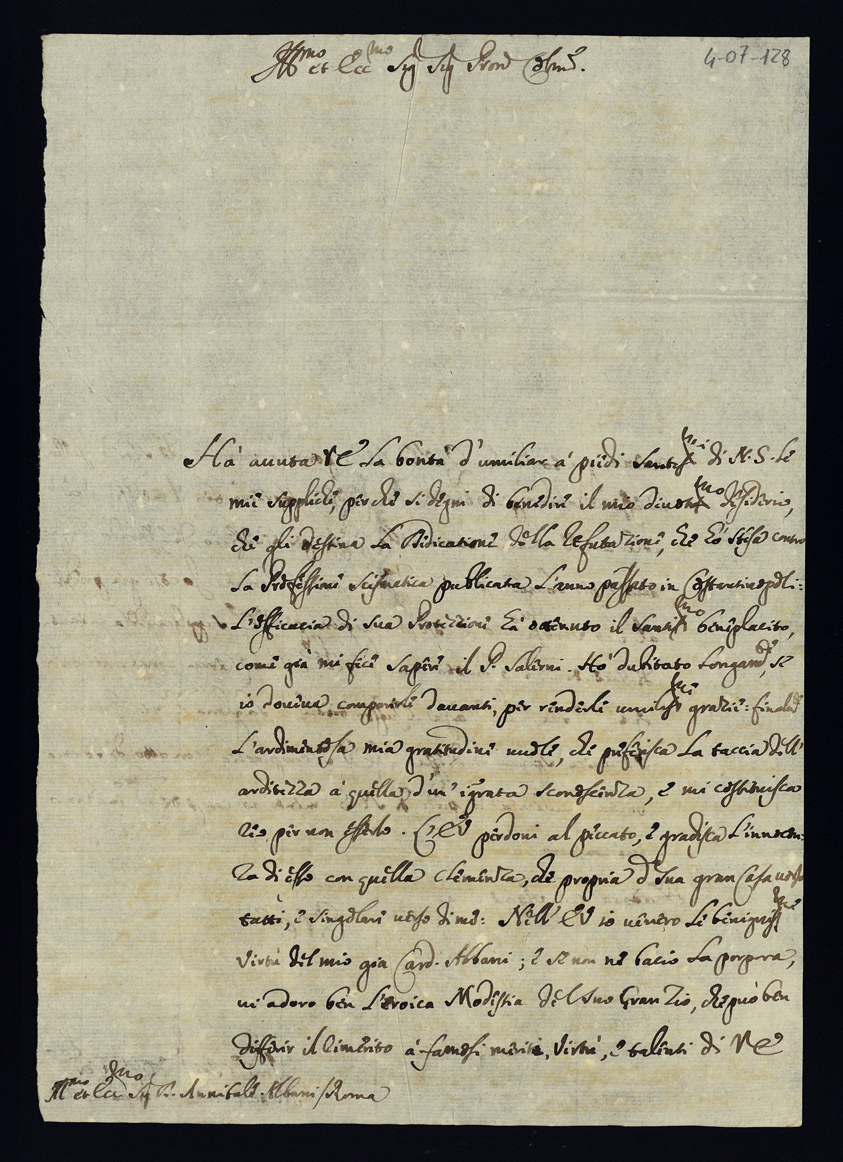 Ill.mo et Ecc.mo Sig.r Sig.r Pron Col.mo.
4-07-128
Há auuta VE la bontà d'umiliar á piedi Santiss.mi di N. S. le
mie suppliche, perche si degni di benedire il mio diuotiss.mo desiderio,
che gli destina la Didicatione della refutazione, che hò stesa contro
la Professione Scismatica publicata l'anno passato in Costantinopoli:
L'efficacia di sua Protezione há ottenuto il Santiss.mo beneplacito,
come giá mi fece sapere il P. Salerni. Hò dubitato longam.te, se
io doueua comparirle dauanti, per renderle umiliss.me grazie: finalm.te
L'ardimentosa mia gratitudine uuole, che preferisca la taccia dell'
arditezza á quella d'un' ingrata sconoscenza, e mi costituisca
reo per non esserlo. L'EV perdoni al peccato, e gradisca l'innocen:
za di esso con quella clemenza, che propria di sua gran Casa uerso
tutti, é singolare uerso di me: Nell' EV io uenero le benigniss.me
Virtù del mio gia Card. Albani; e se non ne bacio la porpora,
ui adoro ben l'eroica Modestia del suo Gran Zio, che può ben
differir il rimerito á famosi meriti, Virtù, e talenti di VE
Ill.mo et Ecc.mo Sig.r D. Annibale Albani / Roma